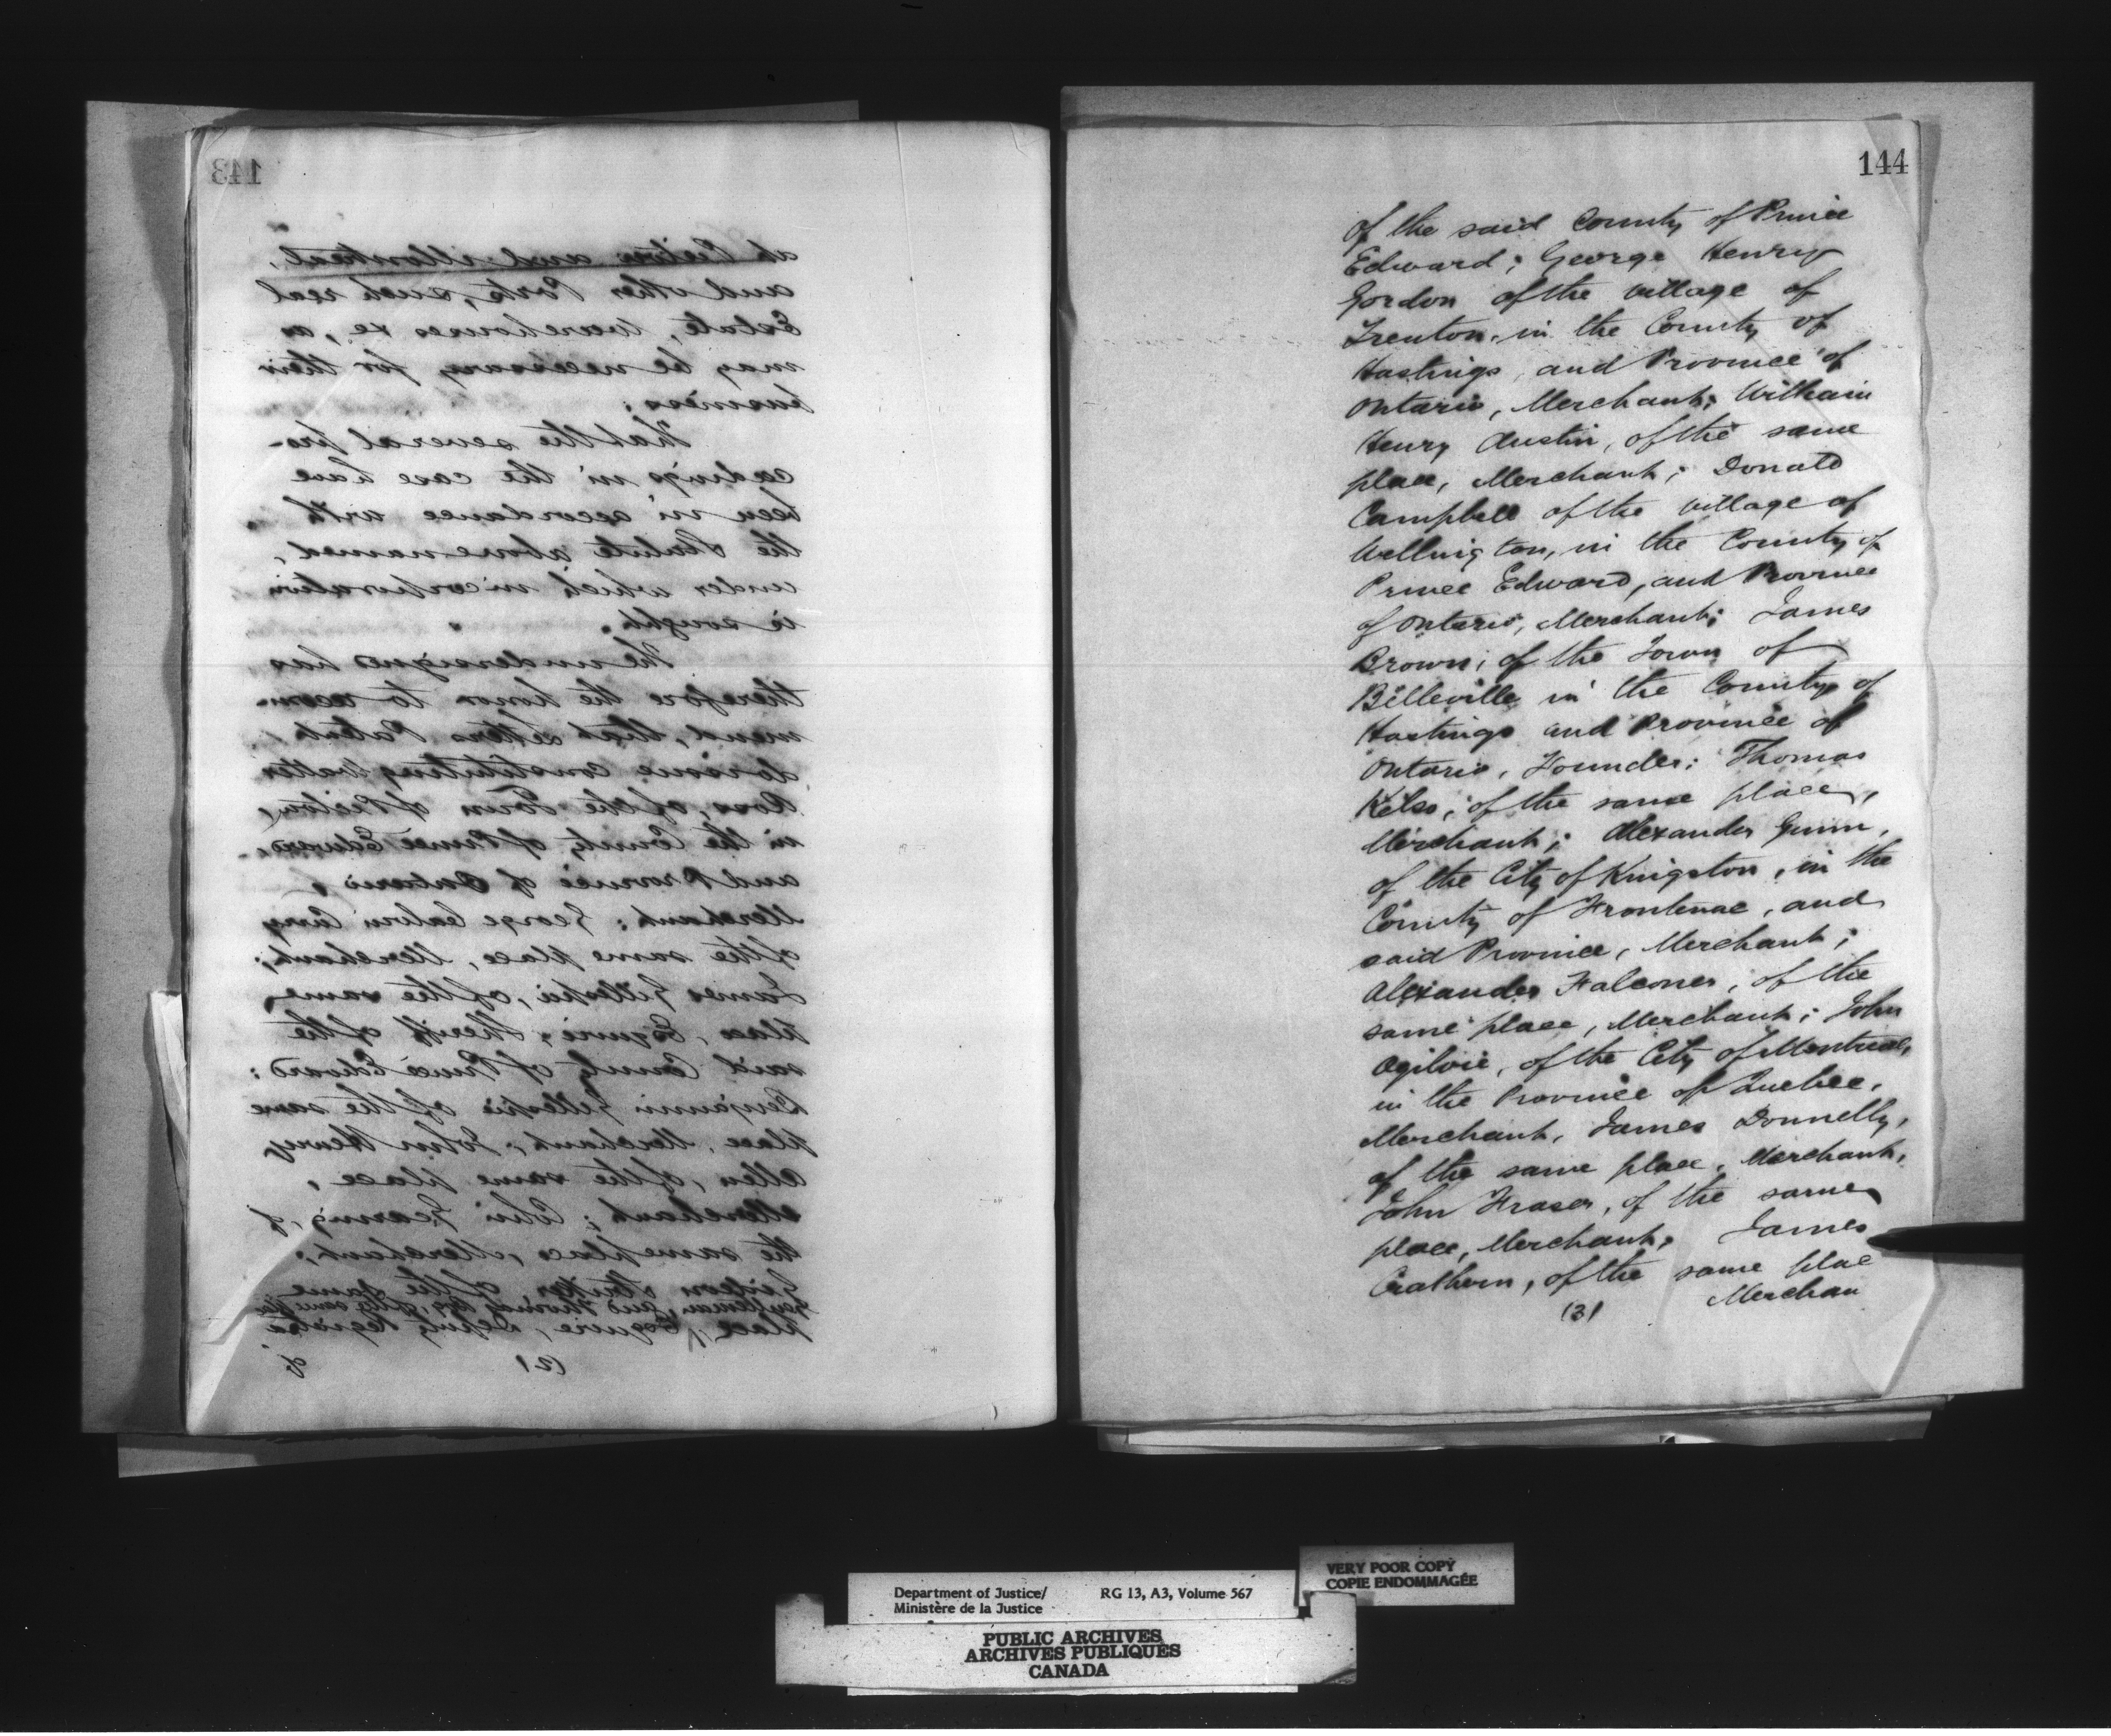 143
at Picton and Montreal,
and other Ports, such real
Estate, Warehouses &c, as
may be necessary for their
business;
That the several pro-
ceedings in the case have
been in accordance with
the Statute above named,
under which incorporation
is sought.
The undersigned has
therefore the honor to recom-
mend, that Letters Patent
do issue constituting Walter
Ross, of the Town of Picton,
in the County of Prince Edward,
and Province of Ontario,
Merchant; George
of the same place, Merchant;
James Gillespie, of the same
place, Esquire, Sheriff of the
said County of Prince Edward;
Benjamin Gillespie of the same
place, Merchant; John Henry
Allen, of the same place,
Merchant; of
the same place, Merchant;
Gideon Striker, of the same
Gentleman, and Thomas of the same
place, Esquire, Deputy Registrar
(2) of
144
of the said County of Prince
Edward; George Henry
Gordon of the village of
Trenton, in the County of
Hastings, and Province of
Ontario, Merchant; William
Henry Austin, of the same
place, Merchant; Donald
Campbell of the village of
Wellington, in the County of
Prince Edward, and Province
of Ontario, Merchant; James
Brown; of the Town of
Belleville in the County of
Hastings and Province of
Ontario, Founder; Thomas
Kelso; of the same place,
Merchant; Alexander Gunn,
of the City of Kingston, in the
County of Frontenac, and
said Province, Merchant;
Alexander Falconer, of the
same place, Merchant; John
Ogilvie, of the City of Montreal,
in the Province of Quebec,
Merchant, James Donnelly,
of the same place, Merchant,
John Fraser, of the same
place, Merchant, James
Crathern, of the same plac
(3) Merchan
Department of Justice/ RG 13, A3, Volume 567
Ministère de la Justice
VERY POOR COPY
COPIE ENDOMMAGÉE
PUBLIC ARCHIVES
ARCHIVES PUBLIQUES
CANADA